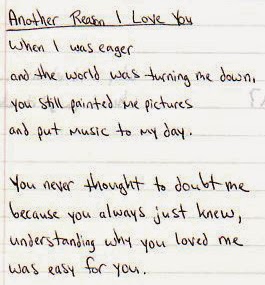 Another Reason I Love You
When I was eager
and the world was turning me down,
you still painted me pictures
and put music to my day.
You never thought to doubt me
because you always just knew,
understanding why you loved me
was easy for you.